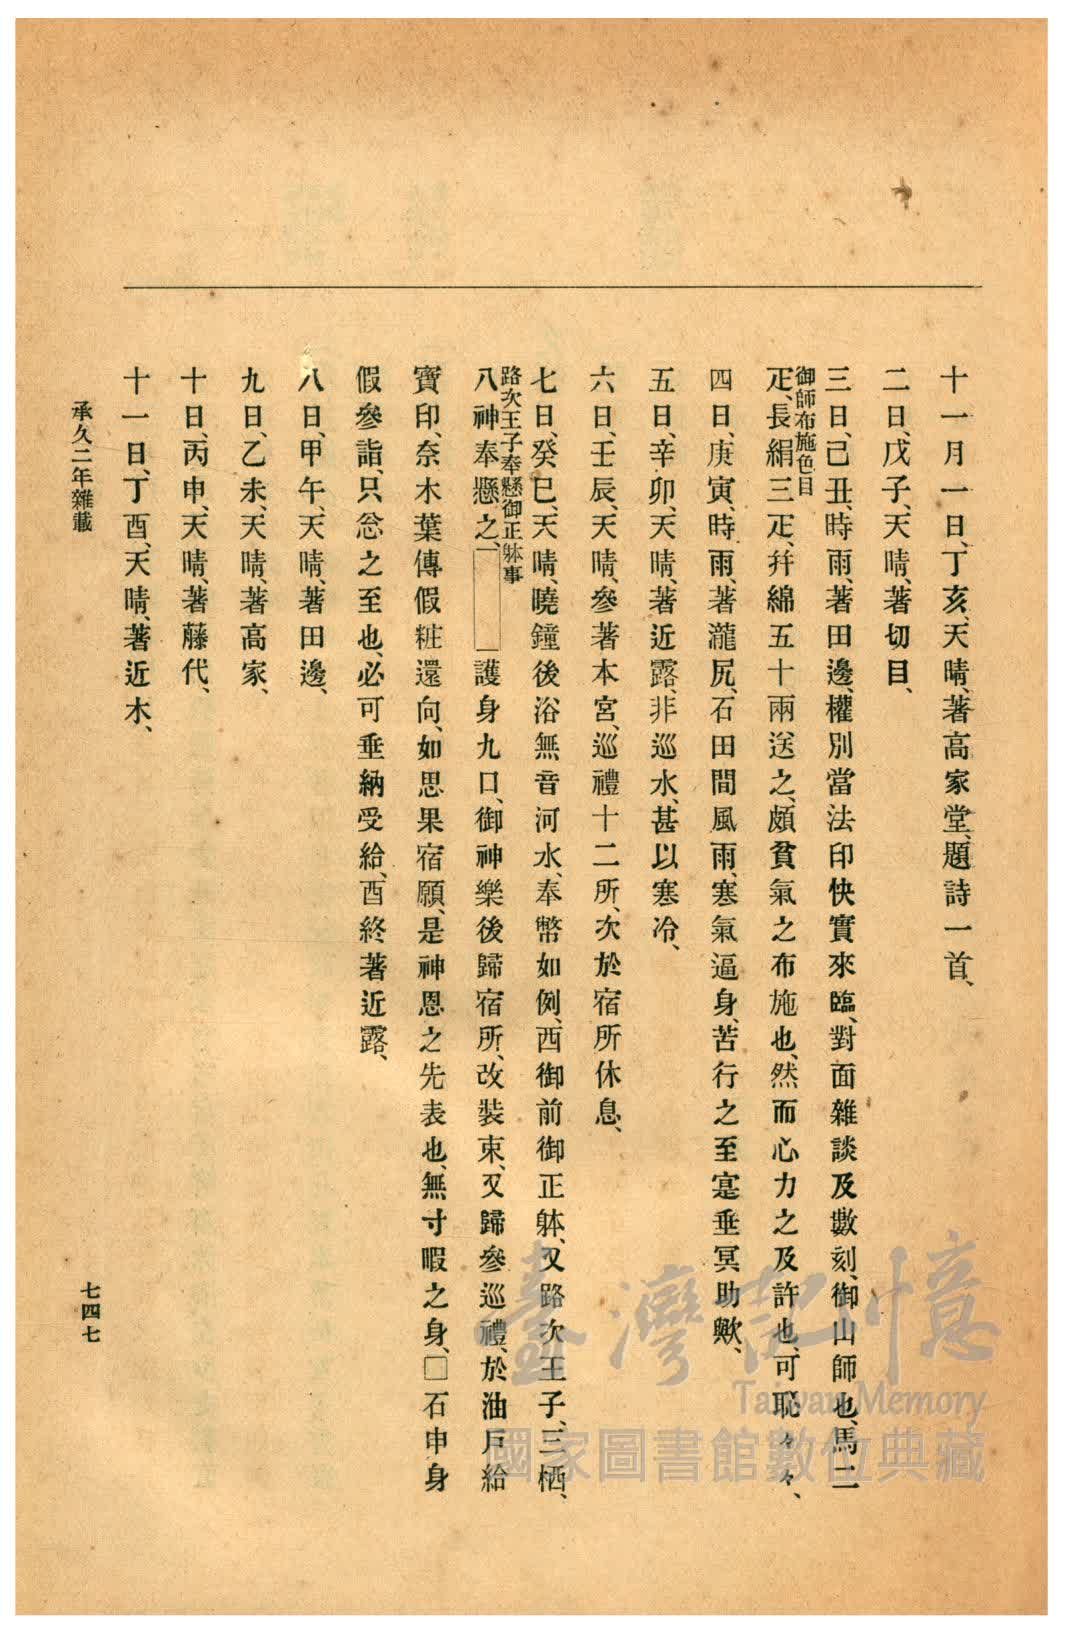 十一月一日、丁亥、天晴、著高家堂、題詩一首、
二日、戊子、天晴、著切目、
三日、己丑、時雨、著田邊、權別當法印快實來臨、對面雜談及數刻、御山師也、馬二
御師布施色目
疋、長絹三疋、幷綿五十兩送之、頗貧氣之布施也、然而心力之及許也、可恥々々、
四日、庚寅、時雨、著瀧尻、石田間風雨、寒氣逼身、苦行之至寔垂冥助歟、
五日、辛卯、天晴、著近露、非巡水、甚以寒冷、
六日、壬辰、天晴、參著本宮、巡禮十二所、次於宿所休息、
七日、癸巳、天晴、曉鐘後浴無音河水、奉幣如例、西御前御正躰、又路次王子、三栖、
路次王子奉懸御正躰事
八神奉懸之、護身九口、御神樂後歸宿所、改裝束、又歸參巡禮、於油戶給
寶印、奈木葉傳假粧還向、如思果宿願、是神恩之先表也、無寸暇之身、□石申身
假參詣、只忩之至也、必可垂納受給、酉終著近露、
八日、甲午、天晴、著田邊、
九日、乙未、天晴、著高家、
十日、丙申、天晴、著藤代、
十一日、丁酉、天晴、著近木、
承久二年雜載
七四七
臺灣記憶
Taiwan Memory
國家圖書館數位典藏